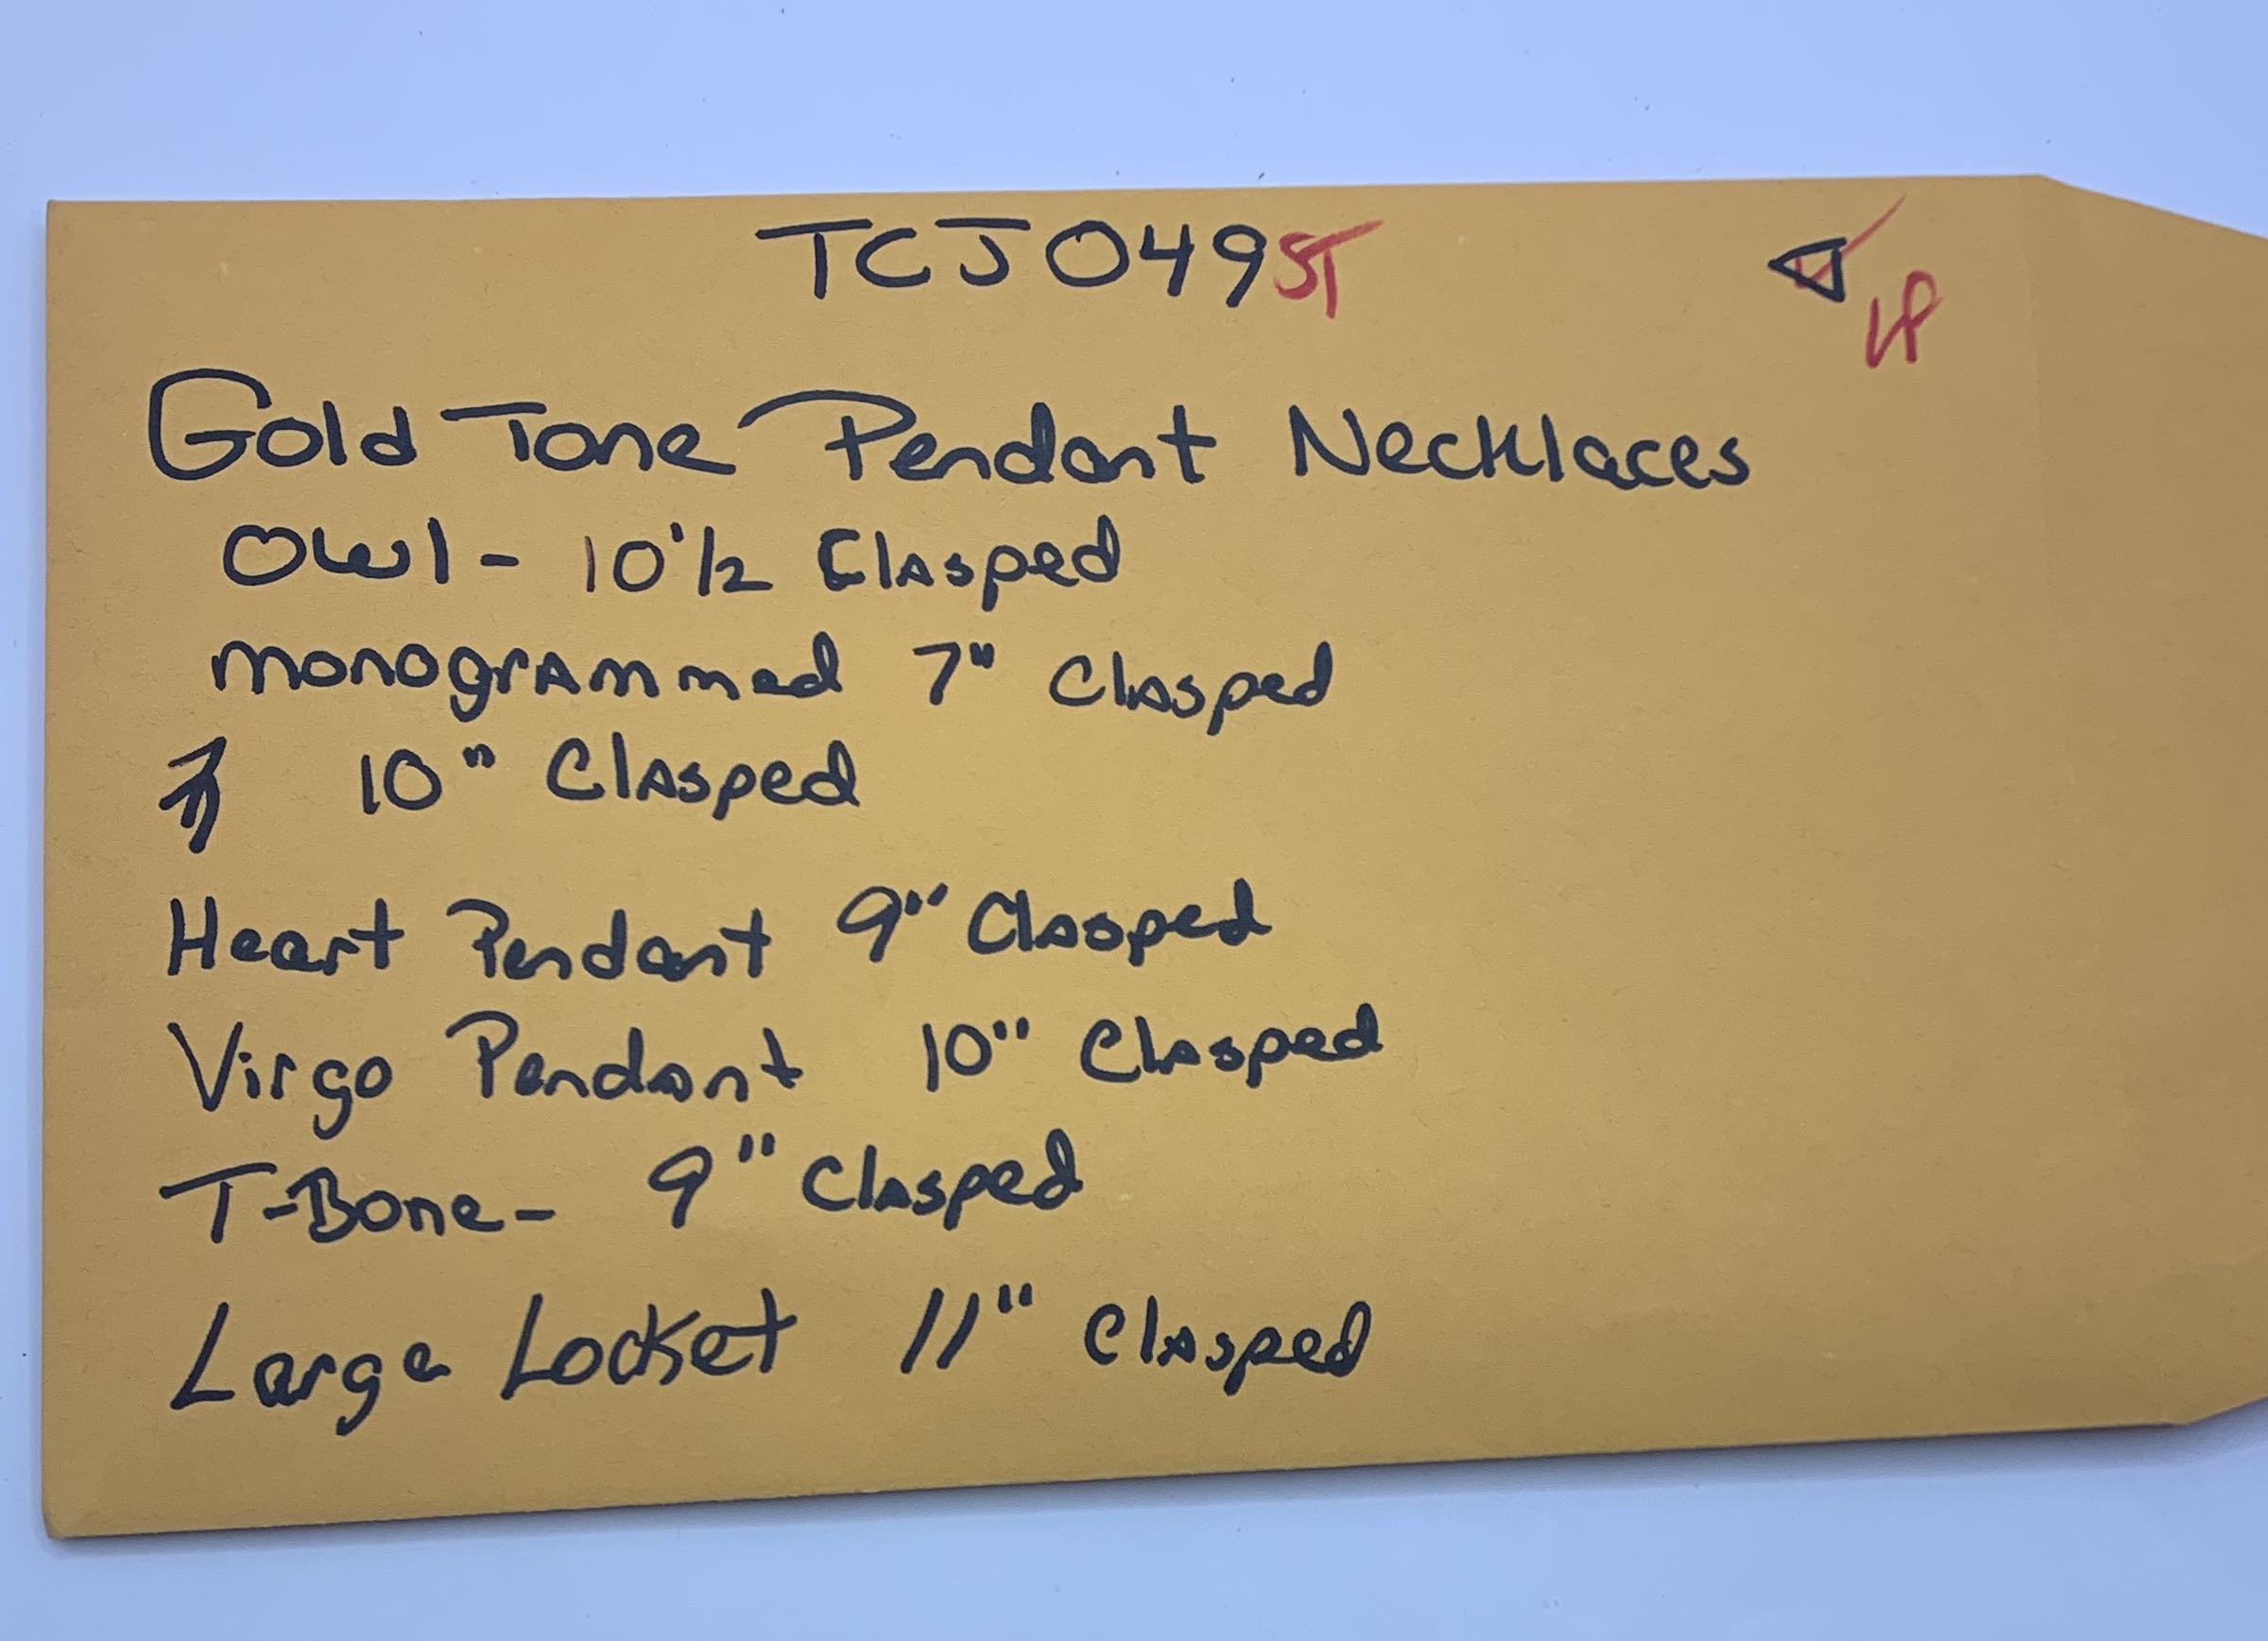 TCJ049ST
Gold Tone Pendant Necklaces
Owl - 10 1/2 Clasped
monogrammed 7" Clasped
10" Clasped
Heart Pendant 9" Clasped
Virgo Pendant 10" Clasped
T-Bone - 9" Clasped
Large Locket 11" Clasped